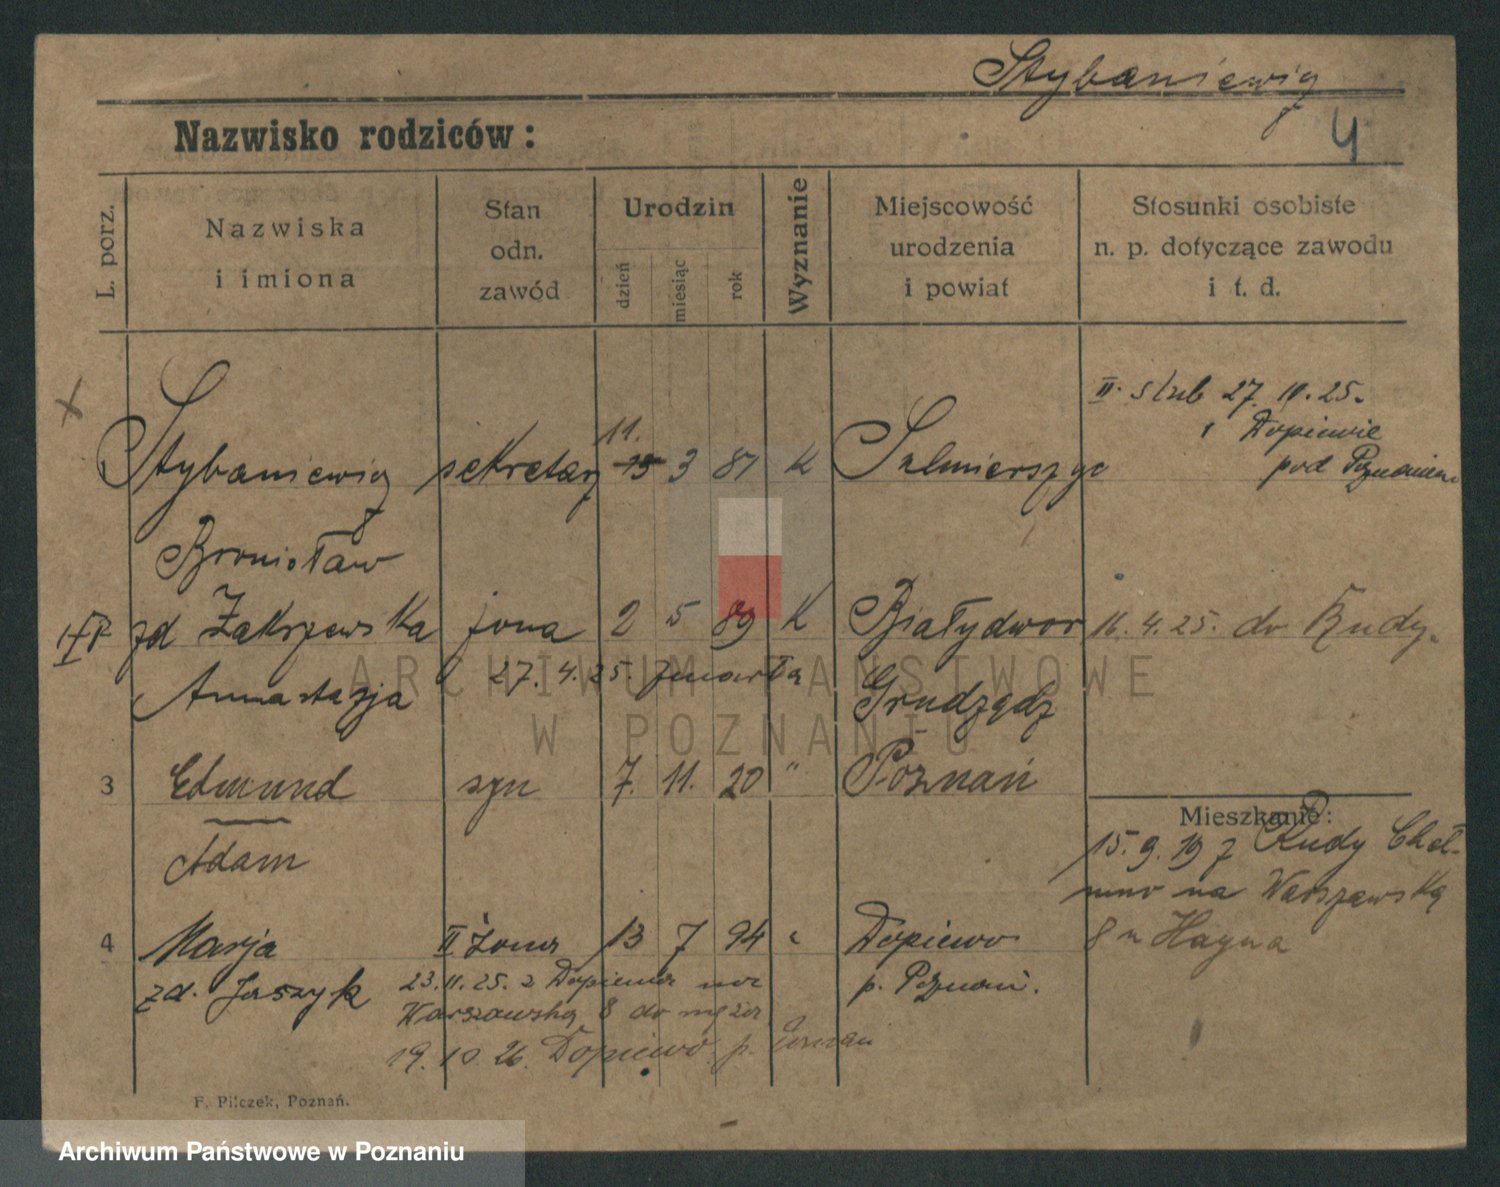 Stybaniewicz
Nazwisko rodziców:
4
L. porz.
Nazwiska
i imiona
Stan
odn.
zawód
Urodzin
dzień
miesiąc
rok
Wyznanie
Miejscowość
urodzenia
i powiat
Stosunki osobiste
n. p. dotyczące zawodu
i t. d.
II. ślub 27. 11. 25.
Dopiewie
pod Poznaniem
11.
Stybaniewicz sekretarz 15 3 87 K Sulmierzyce
Bronisław
zd Zakrzewska żona 2 5 89 K Białydwor 16. 4. 25. do Rudy
27. 4. 25. zmarła
Anastazja Grudządz
3 Edmund syn 7. 11. 20 " Poznań
Mieszkanie:
Adam
15. 9. 19 z Rudy Cheł-
mno na Warszawską
4 Marja II żona 13 7 94 " Dopiewo 8 u Hayna
zd. Jaszyk 23. 11. 25. z Dopiewa na p. Poznań.
Warszawską 8 do męża
19. 10. 26. Dopiewo p. Poznań
F. Pilczek, Poznań.
ARCHIWUM PAŃSTWOWE
W POZNANIU
Archiwum Państwowe w Poznaniu